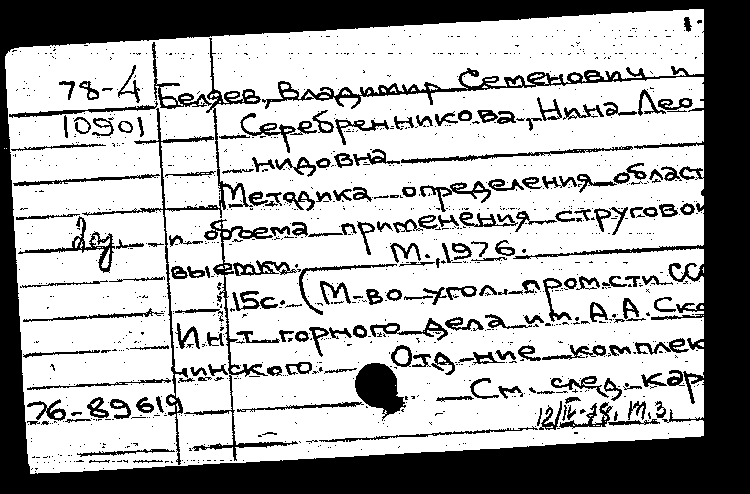 1.
78-4 Беляев, Владимир Семенович и
10901 Серебренникова, Нина Лео-
нидовна
Методика определения област
2оу. и объема применения струговой
выемки. М., 1976.
15с. (М-во угол. пром.сти ССС
Ин-т горного дела им. А.А. Ско
чинского. Отд-ние комплек
76-89619 См. след. кар
12/IV-78. т.з.